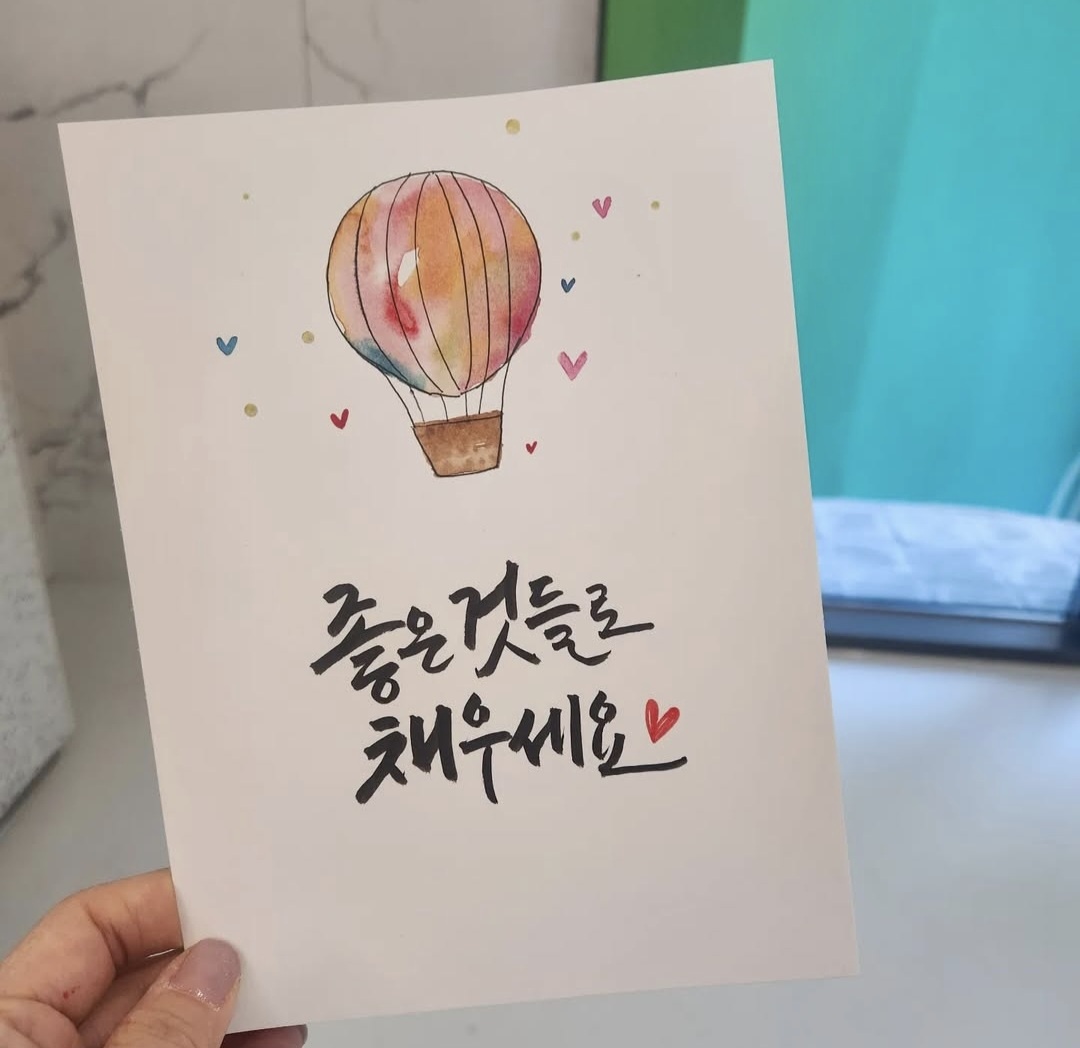 좋은것들로
채우세요